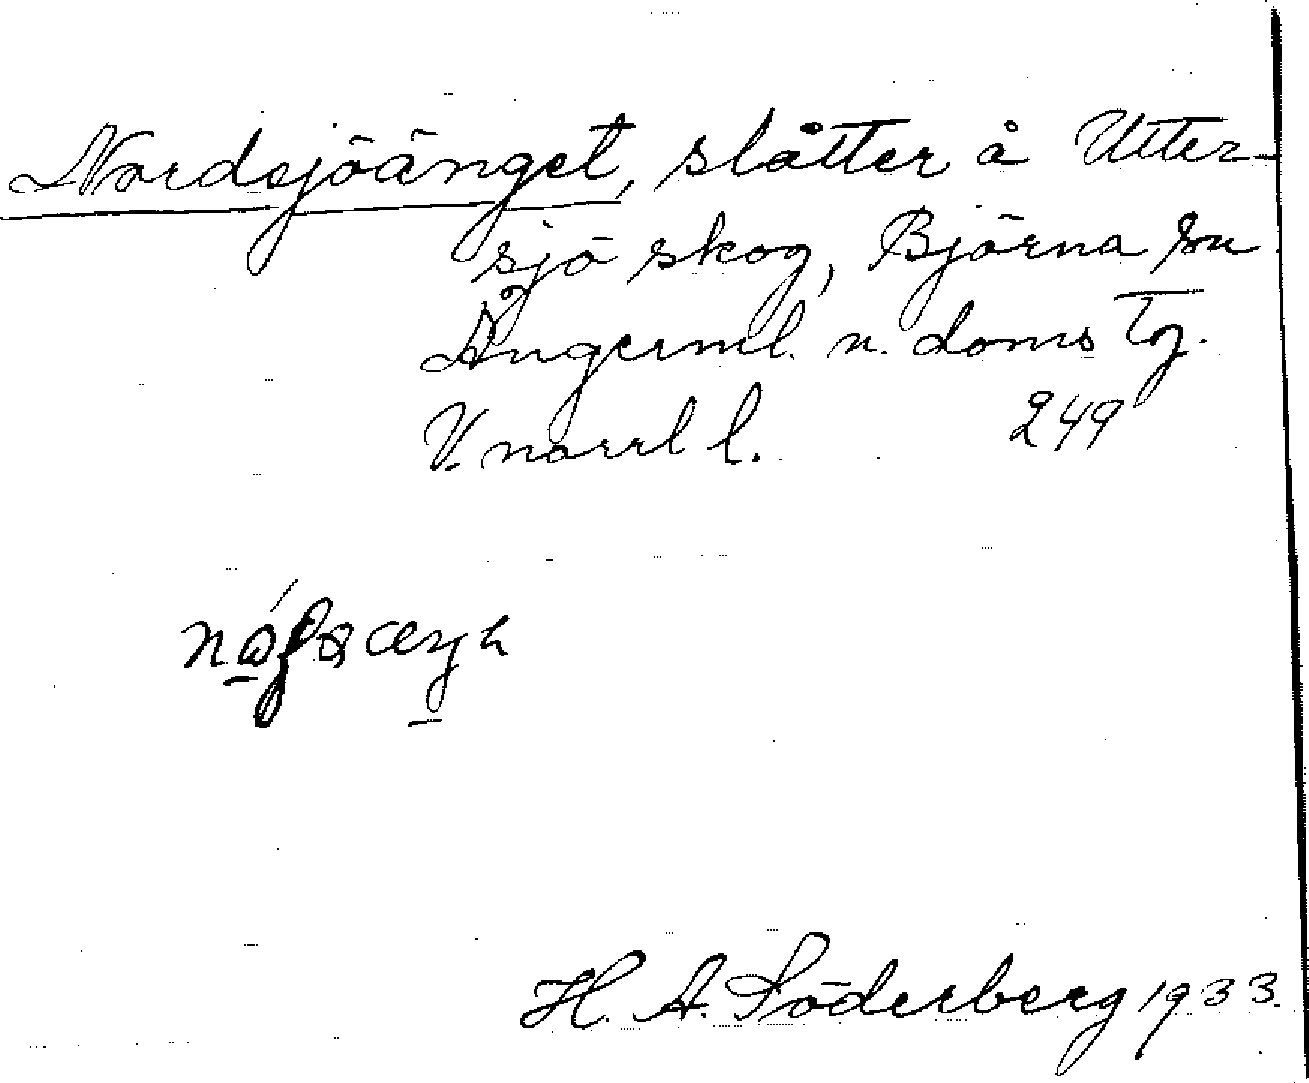 Nordsjöänget, slåtter å Utter-
sjö skog, Björna sn
Ångerml. n. doms Tg.
V. norrl l. 249
H. A. Söderberg 1933.